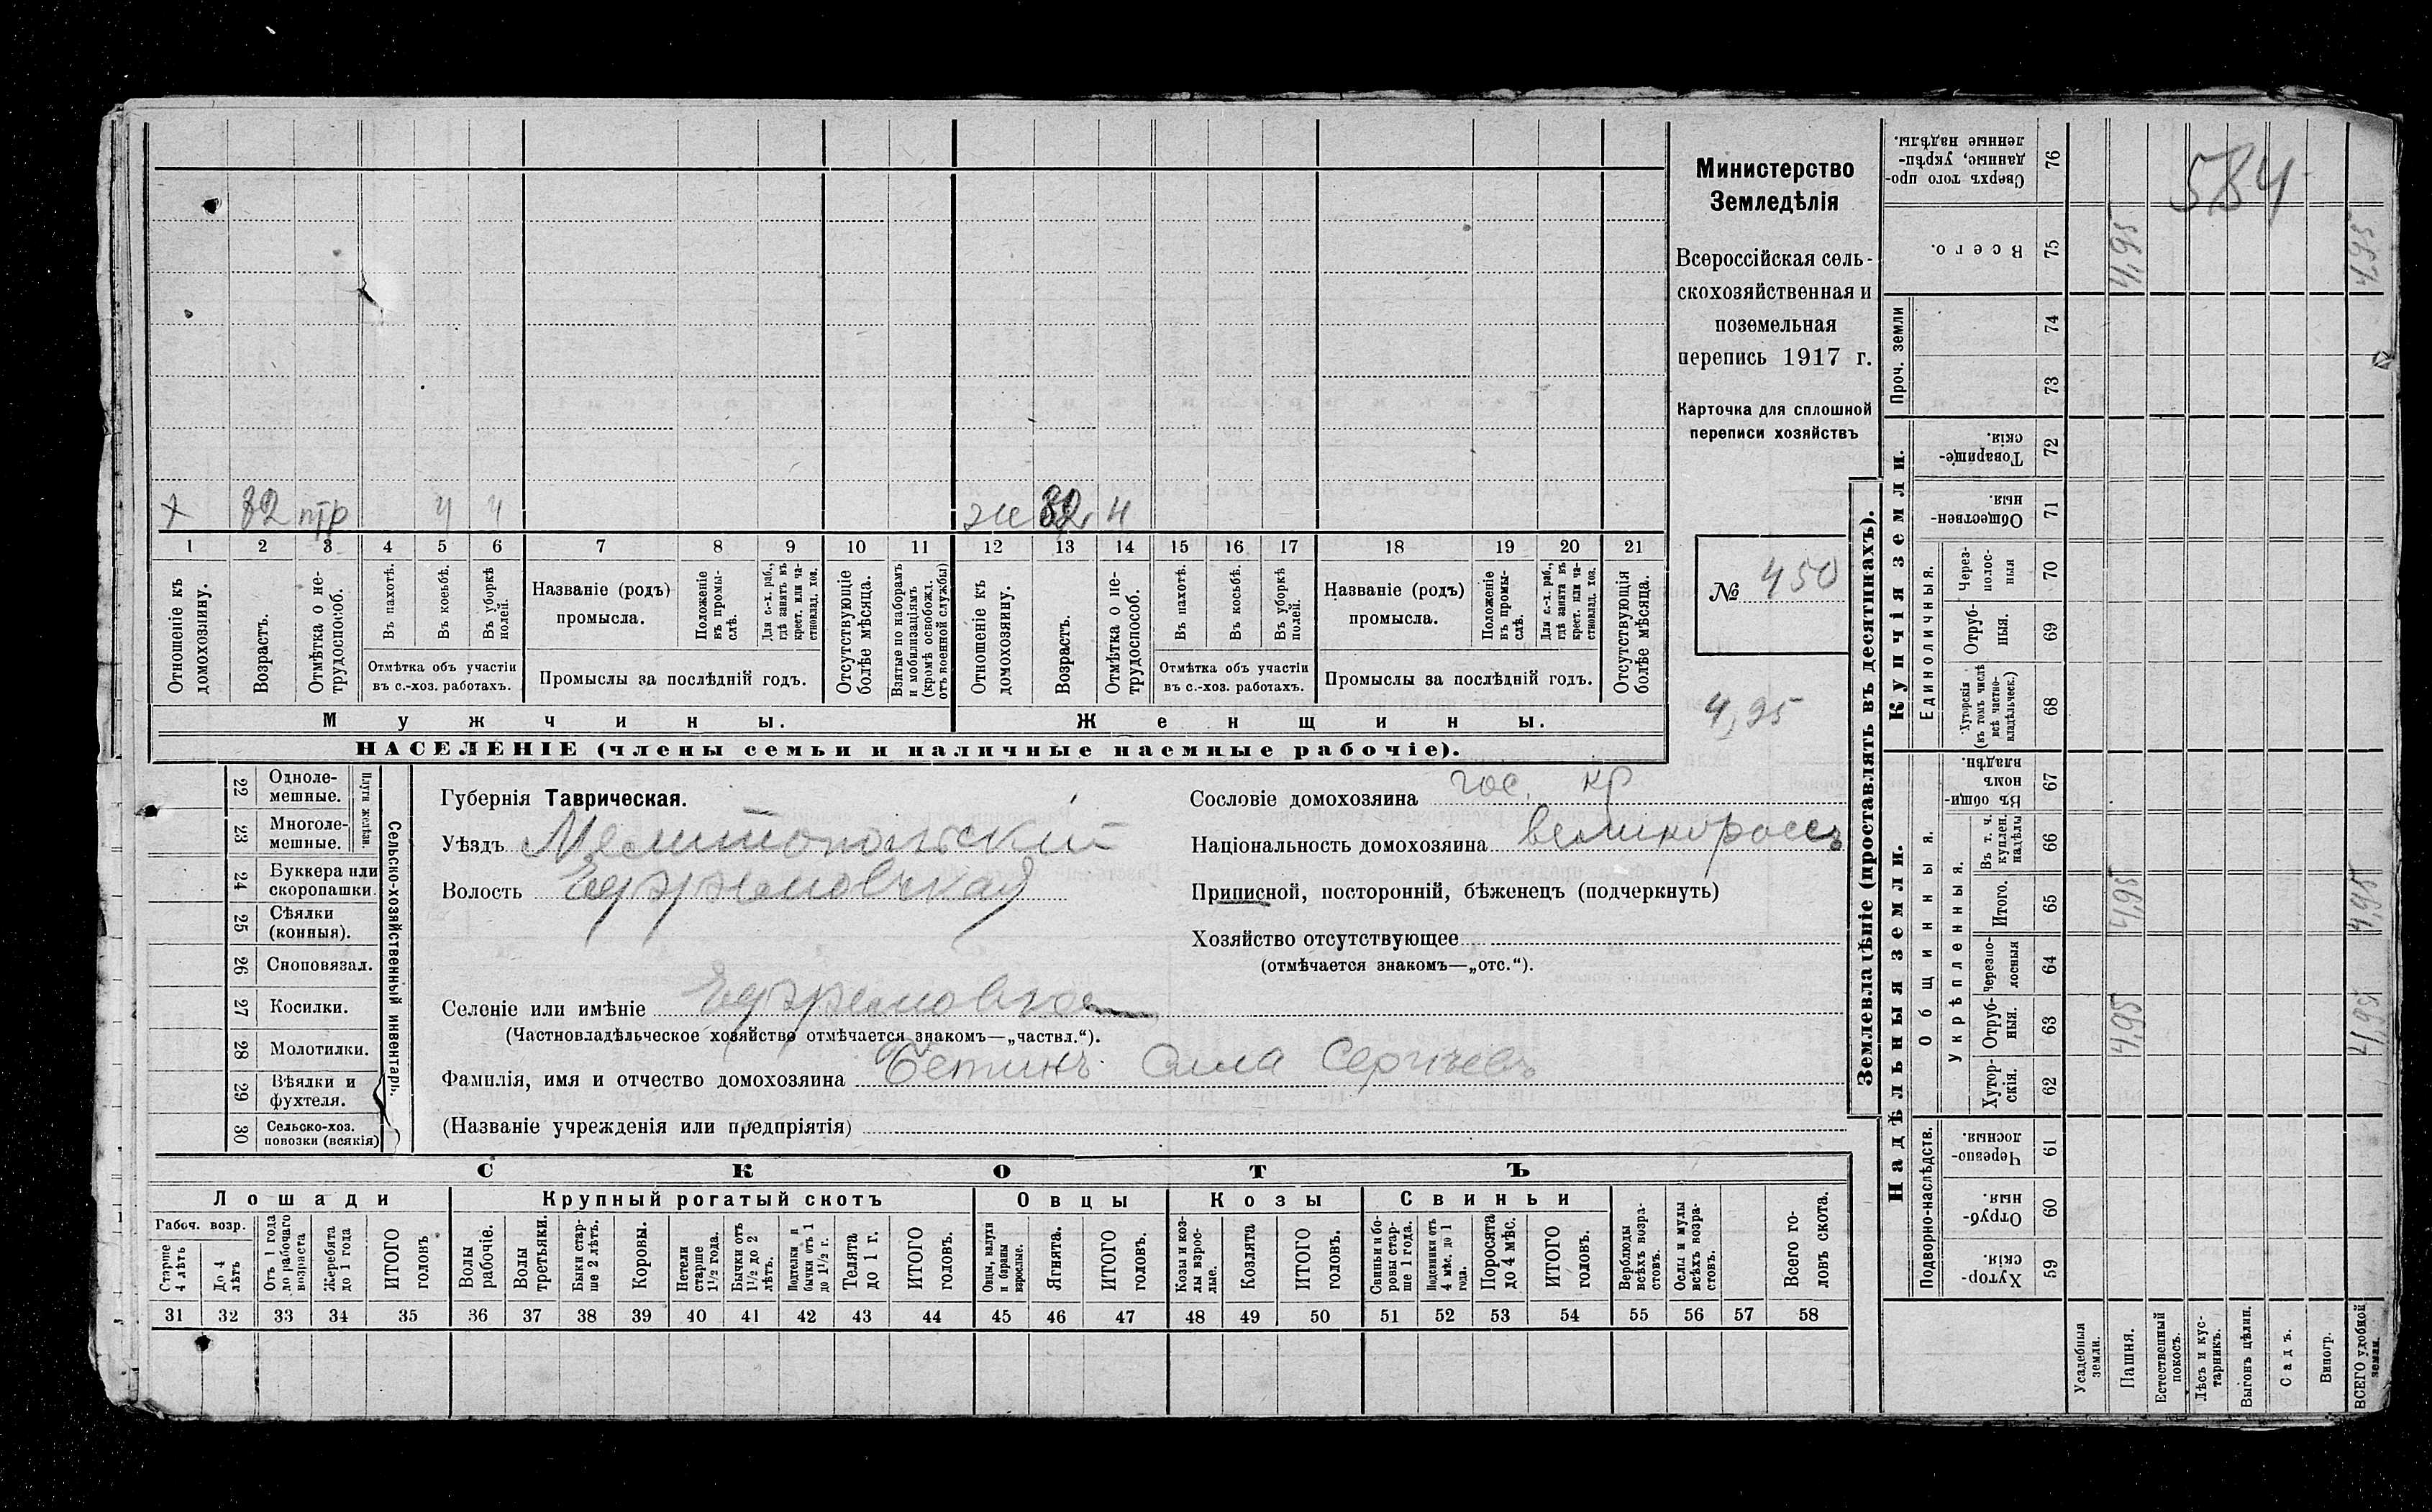 х 32 птр ч ч же 32 н
1 2 3 4 5 6 7 8 9 10 11 12 13 14 15 16 17 18 19 20 21
Отношеніе къ домохозяину.
Возрастъ.
Отмѣтка о не-
трудоспособ.
Въ пахотѣ.
Въ косьбѣ.
Въ уборкѣ
полей.
Отмѣтка объ участіи
въ с.-хоз. работахъ.
Названіе (родъ)
промысла.
Положеніе
въ промы-
слѣ.
Для с.-х. раб.,
гдѣ занятъ въ
крест. или ча-
стновлад. хоз.
Промыслы за послѣдній годъ.
Отсутствующіе
болѣе мѣсяца.
Взятые по наборамъ
и мобилизаціямъ
(кромѣ освобожд.
отъ военной службы)
Отношеніе къ
домохозяину.
Возрастъ.
Отмѣтка о не-
трудоспособ.
Въ пахотѣ.
Въ косьбѣ.
Въ уборкѣ
полей.
Отмѣтка объ участіи
въ с.-хоз. работахъ.
Названіе (родъ)
промысла.
Положеніе
въ промы-
слѣ.
Для с.-х. раб.,
гдѣ занята въ
крест. или ча-
стновлад. хоз.
Промыслы за послѣдній годъ.
Отсутствующія
болѣе мѣсяца.
Мужчины.
Женщины.
НАСЕЛЕНІЕ (члены семьи и наличные наемные рабочіе).
Министерство
Земледѣлія
Всероссійская сель-
скохозяйственная и
поземельная
перепись 1917 г.
Карточка для сплошной
переписи хозяйствъ
№ 450
4,95
22 Одноле-
мешные.
23 Многоле-
мешные.
Плуги желѣзн.
24 Буккера или
скоропашки.
25 Сѣялки
(конныя).
26 Сноповязал.
27 Косилки.
28 Молотилки.
29 Вѣялки и
фухтеля.
30 Сельско-хоз.
повозки (всякія)
Сельско-хозяйственный инвентарь.
Губернія Таврическая.
Уѣздъ Мелитопольскій
Волость Ефремовская
Селеніе или имѣніе Ефремовка
(Частновладѣльческое хозяйство отмѣчается знакомъ—„частвл.“).
Фамилія, имя и отчество домохозяина Бетинъ Сила Сергѣевъ
(Названіе учрежденія или предпріятія)
Сословіе домохозяина гос. кр
Національность домохозяина великороссъ
Приписной, посторонній, бѣженецъ (подчеркнуть)
Хозяйство отсутствующее
(отмѣчается знакомъ—„отс.“).
СКОТЪ
Лошади
Крупный рогатый скотъ
Овцы
Козы
Свиньи
Рабоч. возр.
Старше
4 лѣтъ
До 4
лѣтъ
Отъ 1 года
до рабочаго
возраста
Жеребята
до 1 года
ИТОГО
головъ
Волы
рабочіе.
Волы
третьяки.
Быки стар-
ше 2 лѣтъ.
Коровы.
Нетели
старше
1½ года.
Бычки отъ
1½ до 2
лѣтъ.
Подтелки и
бычки отъ 1
до 1½ г.
Телята
до 1 г.
ИТОГО
головъ.
Овцы, валухи
и бараны
взрослые.
Ягнята.
ИТОГО
головъ.
Козы и коз-
лы взрос-
лые.
Козлята
ИТОГО
головъ.
Свиньи и бо-
ровы стар-
ше 1 года.
Подсвинки отъ
4 мѣс. до 1
года.
Поросята
до 4 мѣс.
ИТОГО
головъ.
Верблюды
всѣхъ возра-
стовъ.
Ослы и мулы
всѣхъ возра-
стовъ.
Всего го-
ловъ скота.
31 32 33 34 35 36 37 38 39 40 41 42 43 44 45 46 47 48 49 50 51 52 53 54 55 56 57 58
Землевладѣніе (проставлять въ десятинахъ).
Купчія земли.
Надѣльныя земли.
Сверхъ того про-
данные, укрѣп-
ленные надѣлы.
76
584
Всего.
75
4,95
4,95
Проч. земли
74
73
Товарище-
скія.
72
Обществен-
ныя.
71
Единоличныя.
Через-
полос-
ныя
70
Отруб-
ныя.
69
Хуторскія
(въ томъ числѣ
всѣ частно-
владѣльческ.)
68
Въ общи-
номъ
владѣн.
67
Общинныя.
Укрѣпленныя.
Въ т. ч.
куплен.
надѣлы
66
Итого.
65
4,95
4,95
Черезпо-
лосныя
64
Отруб-
ныя.
63
4,95
4,95
Хутор-
скія.
62
Подворно-наслѣдств.
Черезпо-
лосныя.
61
Отруб-
ныя.
60
Хутор-
скія.
59
Усадебныя
земли.
Пашня.
Естественный
покосъ.
Лѣсъ и кус-
тарникъ.
Выгонъ цѣлин.
Садъ.
Виногр.
ВСЕГО удобной
земли.